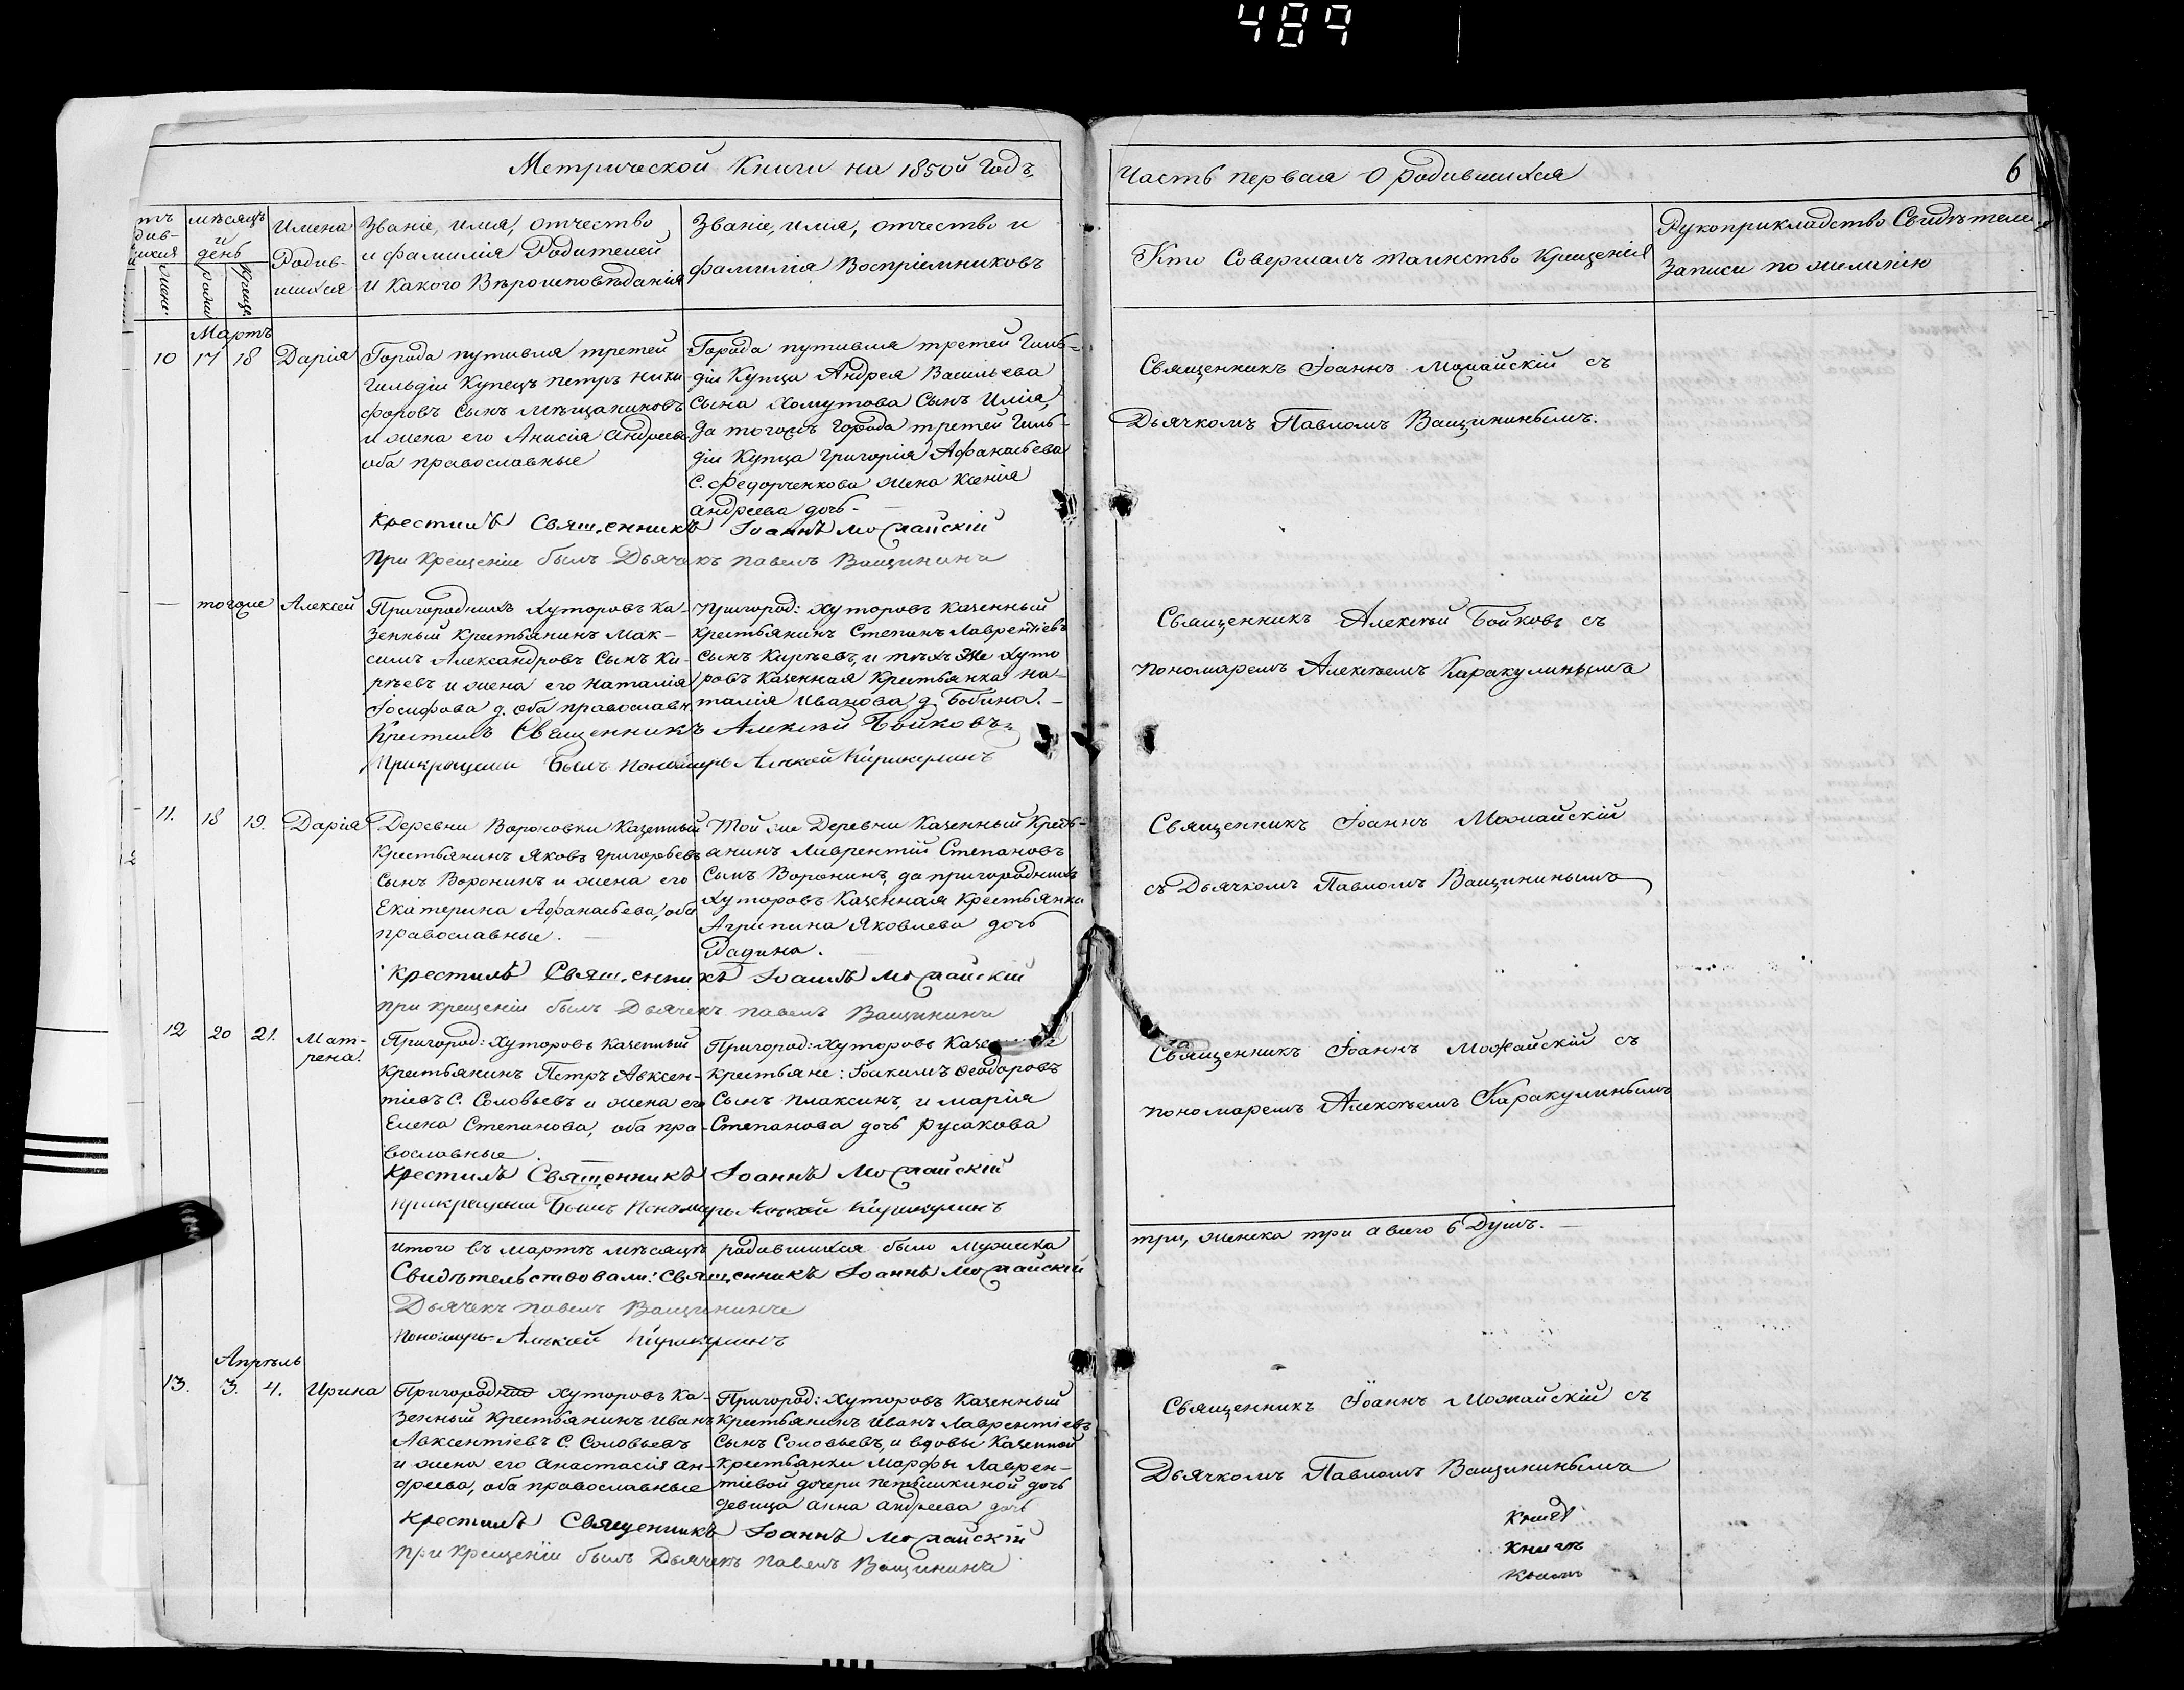 489
Метрической Книги на 1850й Годъ,
Часть первая О родившихся
6
мѣсяцъ
и
день
Имена
Родив-
шихся
Званіе, имя, отчество
и фамилія Родителей
и Какого Вѣроисповѣданія
Званіе, имя, отчество и
фамилія Воспріемниковъ
Кто Совершалъ таинство Крещенія
Рукоприкладство Свидѣтелей
Записи по желанію
Мартъ
10 17 18 Дарія
Города путивля третей
Гильдіи Купецъ петръ ники-
форовъ Сынъ Мѣщаниновъ
и жена его Анисія андреева
оба православные
Города путивля третей Гиль-
діи Купца Андрея Васильева
Сына Хомутова Сынъ Илія,
да тогожъ города третей Гиль-
діи Купца Григорія Афанасьева
С. Федорченкова жена Ксенія
андреева дочь-
Священникъ Іоаннъ Можайскій съ
Дьячкомъ Павломъ Ващининымъ.
Крестилъ Священникъ Іоаннъ Можайскій
При Крещеніи былъ Дьячекъ павелъ Ващининъ
тогоже Алексей
Пригородныхъ Хуторовъ Ка-
зенный Крестьянинъ Мак-
симъ Александровъ Сынъ Ки-
рѣевъ и жена его Наталія
Іосифова д. оба православн.
Пригород: Хуторовъ Казенный
Крестьянинъ Степанъ Лаврентіевъ
Сынъ Кирѣевъ, и тѣхъ Же Хуто
ровъ Казенная Крестьянка На-
талія Иванова д. Бобина.-
Священникъ Алексѣй Бойковъ съ
пономаремъ Алексѣемъ Каракулинымъ
Крестилъ Священникъ Алексѣй Бойковъ
При крещеніи Былъ Пономарь Алексей Каракулинъ
11. 18 19. Дарія
Деревни Вороновки Казенный
Крестьянинъ Яковъ Григорьевъ
Сынъ Воронинъ и жена его
Екатерина Афанасьева, оба
православные.
Той же Деревни Казенный Кресть-
янинъ Лаврентій Степановъ
Сынъ Воронинъ, да пригородныхъ
Хуторовъ Казенная Крестьянка
Агрипина Яковлева дочь
Священникъ Іоаннъ Можайскій
съ Дьячкомъ Павломъ Ващининымъ
Крестилъ Священникъ Іоаннъ Можайскій
при крещеніи былъ Дьячекъ павелъ Ващининъ
12 20 21. Мат-
рена.
Пригород: Хуторовъ Казенный
Крестьянинъ Петръ Авксен-
тіевъ С. Соловьевъ и жена его
Елена Степанова, оба пра-
вославные.
Пригород: Хуторовъ
Крестьяне: Іоакимъ Ѳеодоровъ
Сынъ Плаксинъ, и марія
Степанова дочь русакова
Священникъ Іоаннъ Можайскій съ
пономаремъ Алексѣемъ Каракулинымъ
Крестилъ Священникъ Іоаннъ Можайскій
При крещеніи Былъ Пономарь Алексей Каракулинъ
итого въ мартѣ мѣсяцѣ родившихся было Мужеска
три, женска три а всего 6 Душъ.
Свидѣтельствовали: Священникъ Іоаннъ Можайскій
Дьячекъ павелъ Ващининъ
Пономарь Алексей Каракулинъ
Апрѣль
13. 3. 4. Ирина
Пригородныхъ Хуторовъ Ка-
зенный Крестьянинъ Иванъ
Авксентіевъ С. Соловьевъ
и жена его Анастасія Ан-
дреева, оба православные
Пригород: Хуторовъ Казенный
Крестьянинъ Иванъ Лаврентіевъ
Сынъ Соловьевъ, и вдовы Казенной
Крестьянки Марфы Лаврен-
тіевой дочери дочь
девица анна андреева дочь
Священникъ Іоаннъ Можайскій съ
Дьячкомъ Павломъ Ващининымъ
Крестилъ Священникъ Іоаннъ Можайскій
при Крещеніи былъ Дьячекъ павелъ Ващининъ